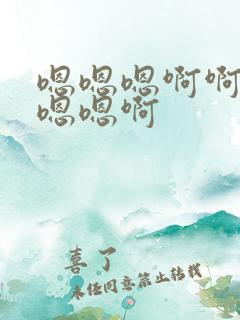 嗯嗯嗯啊啊
嗯嗯啊
喜了
未经同意禁止转载